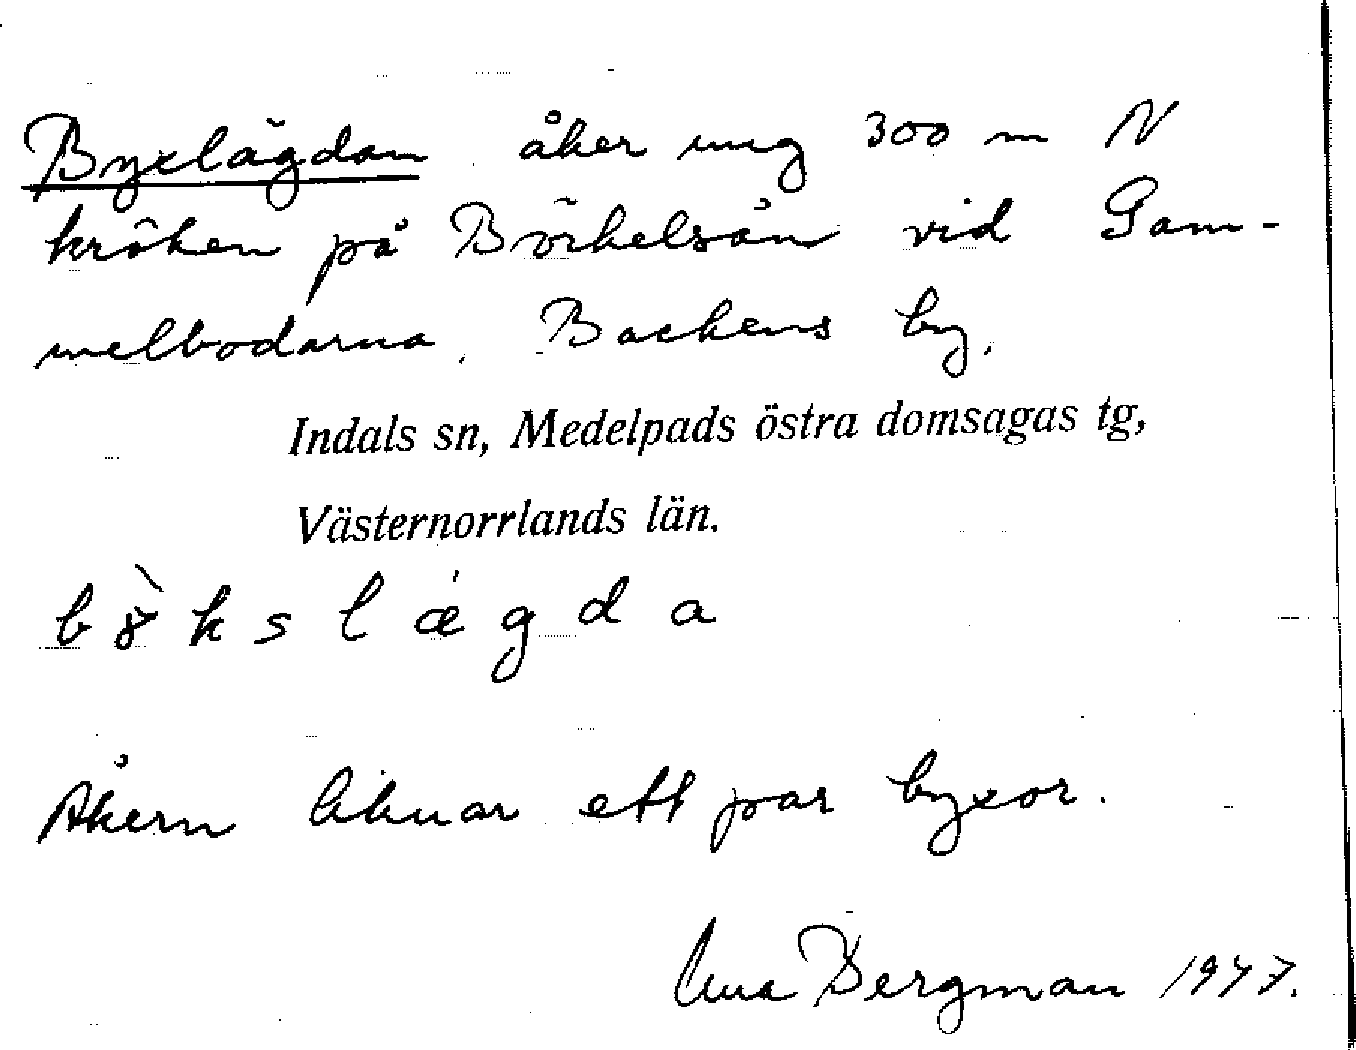 Byxlägdan åker ung 300 m N
kröken på Börkelsån vid Gam-
melbodarna. Backens by.
Indals sn, Medelpads östra domsagas tg,
Västernorrlands län.
b ɤ̀ k s l ǽ g d a
Åkern liknar ett par byxor.
Una Bergman 1947.